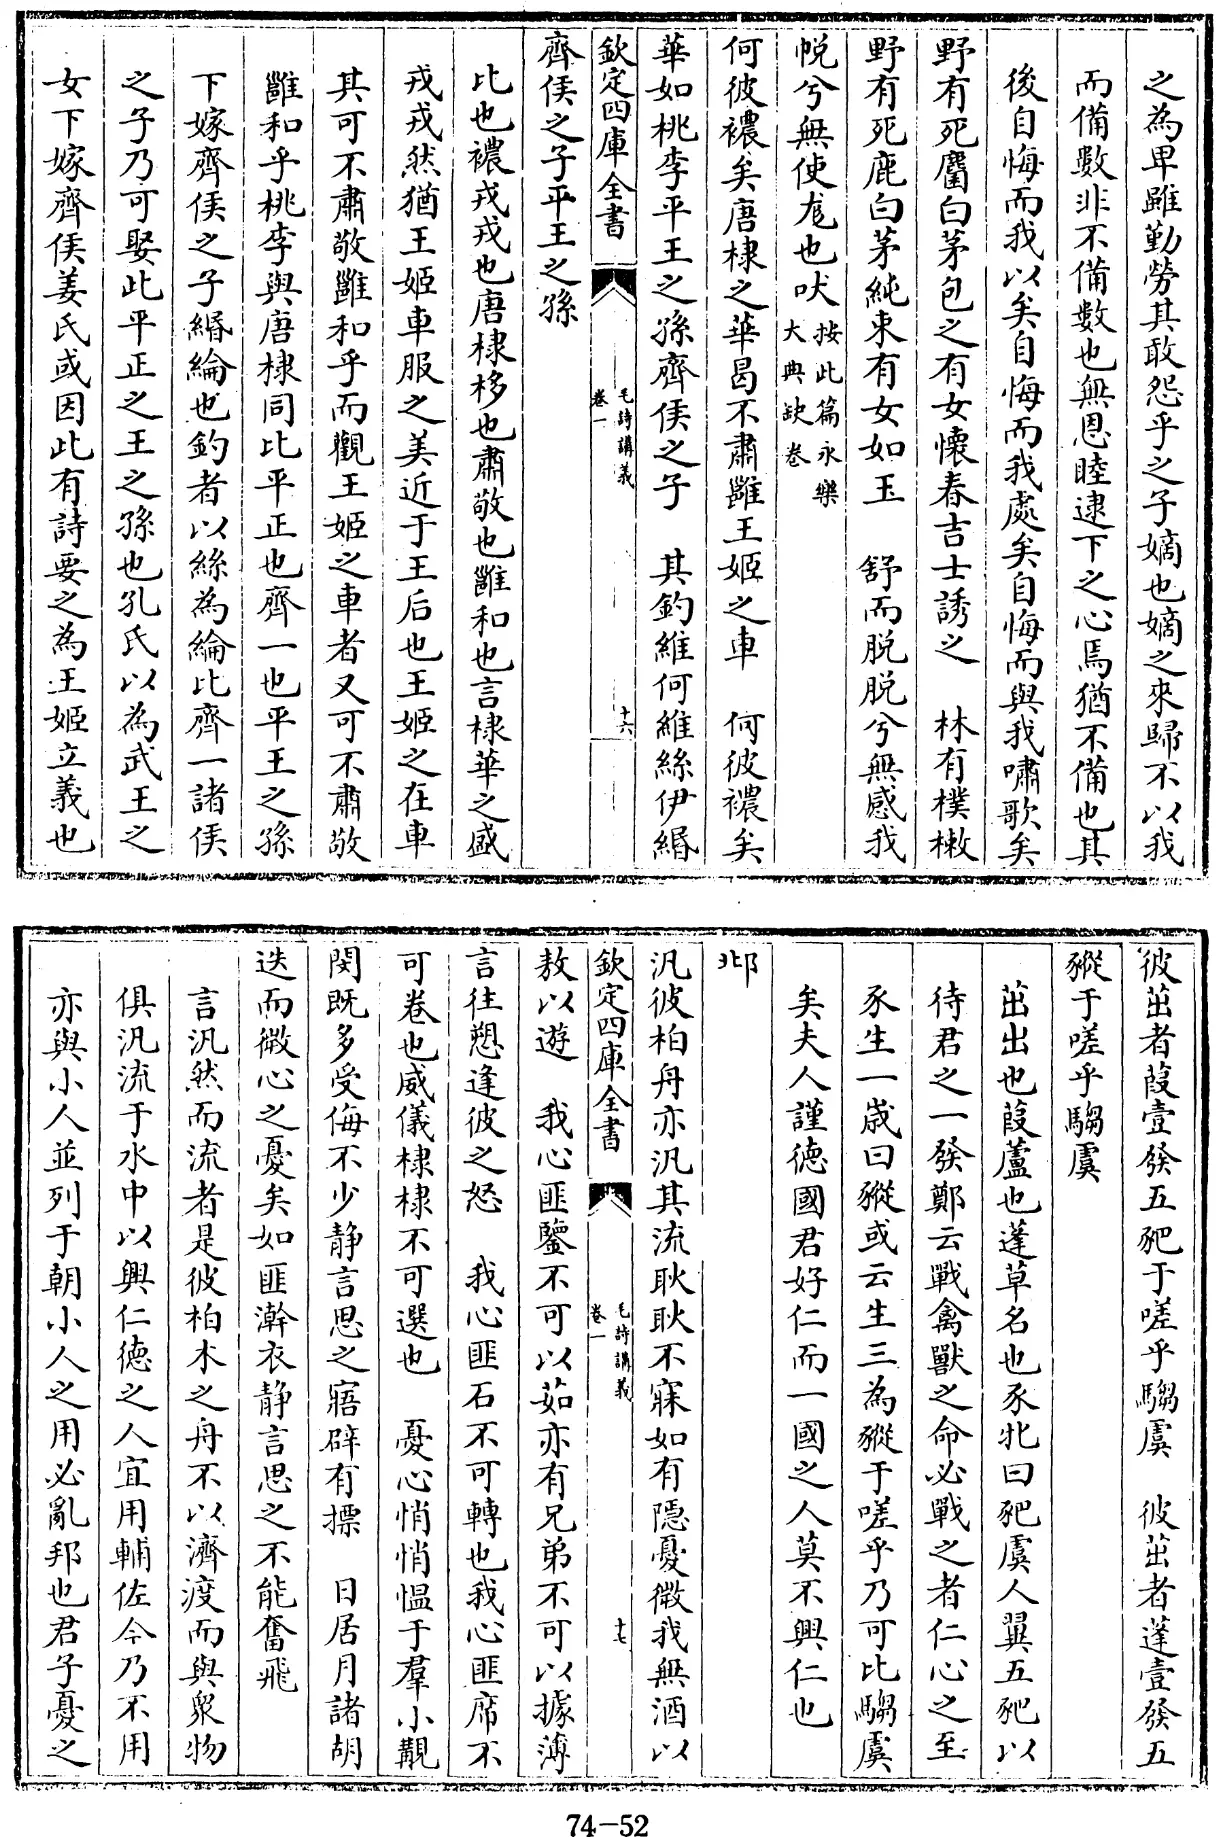 之為卑雖勤勞其敢怨乎之子嫡也嫡之來歸不以我
而備數非不備數也無恩睦逮下之心焉猶不備也其
後自悔而我以矣自悔而我處矣自悔而與我嘯歌矣
野有死麕白茅包之有女懷春吉士誘之 林有樸樕
野有死鹿白茅純束有女如玉 舒而脫脫兮無感我
帨兮無使尨也吠 按此篇永樂大典缺卷
何彼襛矣唐棣之華曷不肅雝王姬之車 何彼襛矣
華如桃李平王之孫齊侯之子 其釣維何維絲伊緡
欽定四庫全書 毛詩講義 卷一 十六
齊侯之子平王之孫
比也襛戎戎也唐棣栘也肅敬也雝和也言棣華之盛
戎戎然猶王姬車服之美近于王后也王姬之在車
其可不肅敬雝和乎而觀王姬之車者又可不肅敬
雝和乎桃李與唐棣同比平正也齊一也平王之孫
下嫁齊侯之子緡綸也釣者以絲為綸比齊一諸侯
之子乃可娶此平正之王之孫也孔氏以為武王之
女下嫁齊侯姜氏或因此有詩要之為王姬立義也
彼茁者葭壹發五豝于嗟乎騶虞 彼茁者蓬壹發五
豵于嗟乎騶虞
茁出也葭蘆也蓬草名也豕牝曰豝虞人翼五豝以
待君之一發鄭云戰禽獸之命必戰之者仁心之至
豕生一歲曰豵或云生三為豵于嗟乎乃可比騶虞
矣夫人謹德國君好仁而一國之人莫不興仁也
邶
汎彼柏舟亦汎其流耿耿不寐如有隱憂微我無酒以
欽定四庫全書 毛詩講義 卷一 十七
敖以遊 我心匪鑒不可以茹亦有兄弟不可以據薄
言往愬逢彼之怒 我心匪石不可轉也我心匪席不
可卷也威儀棣棣不可選也 憂心悄悄慍于羣小覯
閔既多受侮不少靜言思之寤辟有摽 日居月諸胡
迭而微心之憂矣如匪澣衣靜言思之不能奮飛
言汎然而流者是彼柏木之舟不以濟渡而與衆物
俱汎流于水中以興仁德之人宜用輔佐今乃不用
亦與小人並列于朝小人之用必亂邦也君子憂之
74-52